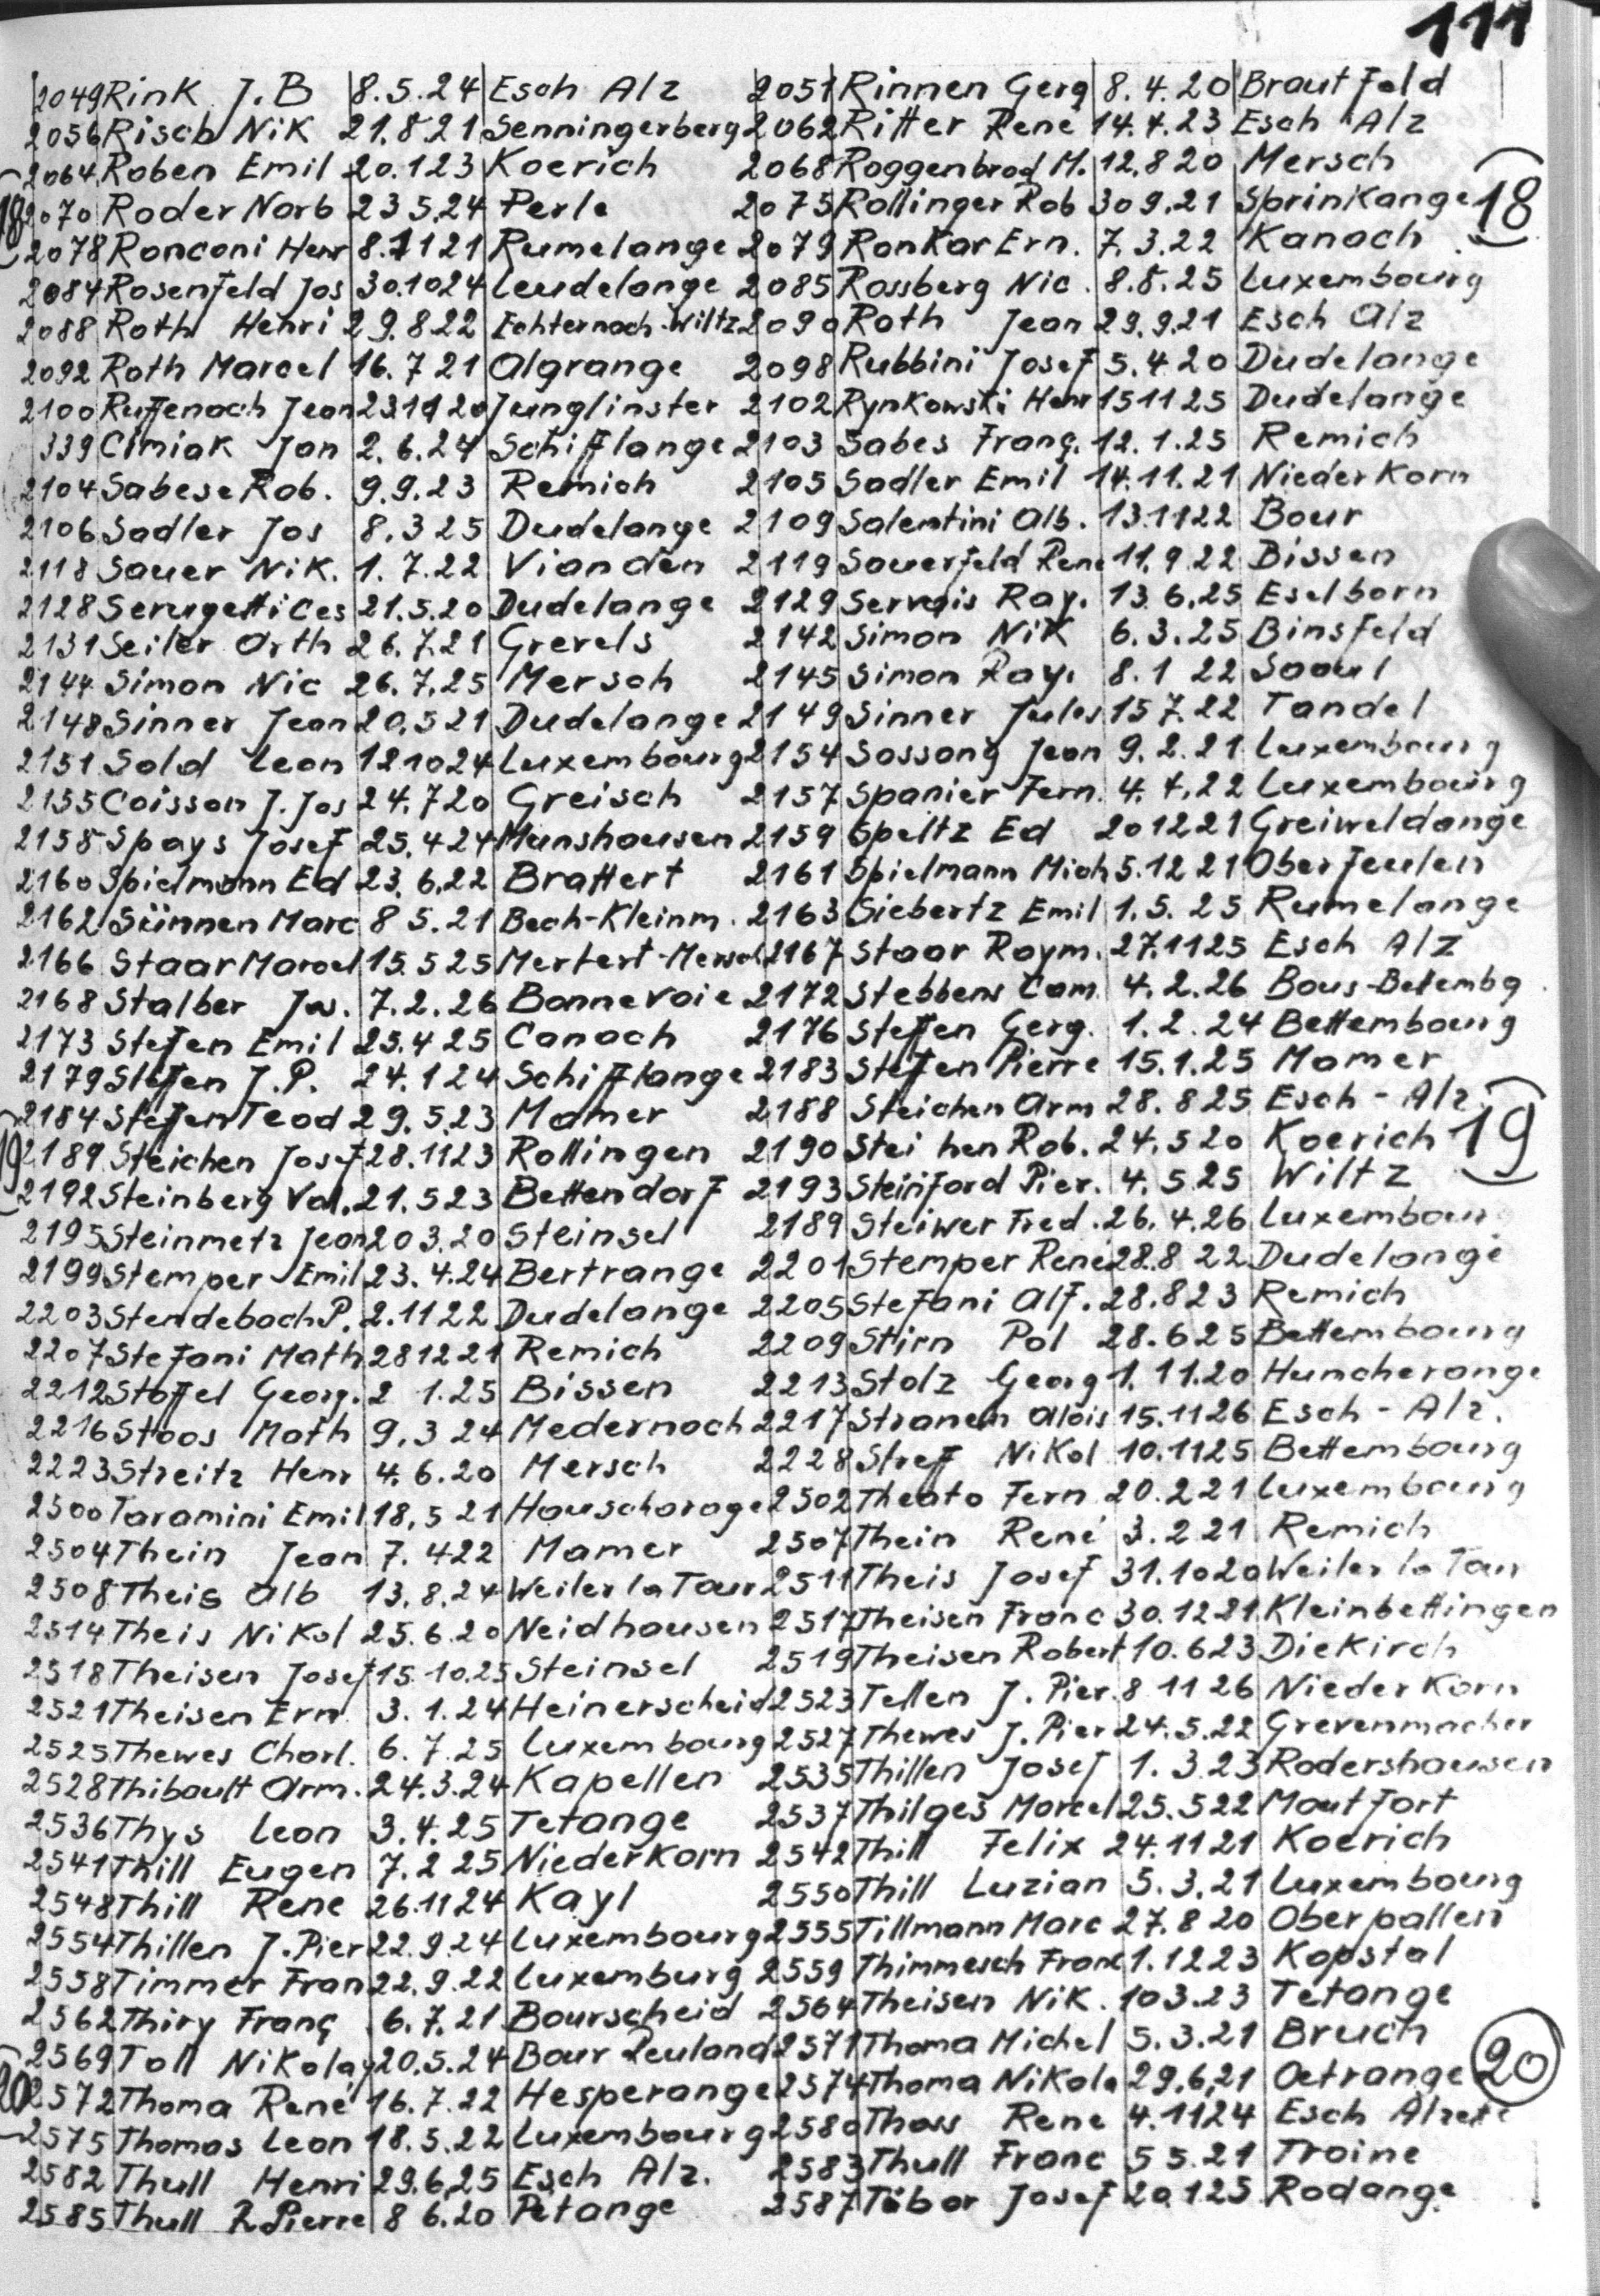 111
2049 Rink J.B 8.5.24 Esch Alz 2051 Rinnen Gerg 8.4.20 Brautfeld
2056 Risch Nik 21.8.21 Senningerberg 2062 Ritter Rene 14.4.23 Esch Alz
2064 Roben Emil 20.123 Koerich 2068 Roggenbrod M. 12.820 Mersch
18 2070 Roder Norb 235.24 Perle 2075 Rollinger Rob 309.21 Sprinkange 18
2078 Ronconi Henr 8.1121 Rumelange 2079 Ronkar Ern. 7.3.22 Kanach
2084 Rosenfeld Jos 30.1024 Leudelange 2085 Rossberg Nic. 8.8.25 Luxembourg
2088 Roth Henri 29.822 Echternach-Wiltz 2090 Roth Jean 29.9.21 Esch Alz
2092 Roth Marcel 16.7 21 Algrange 2098 Rubbini Josef 5.4.20 Dudelange
2100 Ruffenach Jean Junglinster 2102 Rynkowski Henr 151125 Dudelange
339 Cimiak Jan 2.6.24 Schifflange 2103 Sabes Franç. 12.1.25 Remich
2104 Sabese Rob. 9.9.23 Remich 2105 Sadler Emil 14.11.21 Niederkorn
2106 Sadler Jos 8.325 Dudelange 2109 Salentini Alb. 131122 Bour
2118 Sauer Nik. 1.7.22 Vianden 2119 Sauerfeld Rene 11.9.22 Bissen
2128 Serugetti Ces 21.5.20 Dudelange 2129 Servais Ray. 13.6.25 Eselborn
2131 Seiler Orth 26.7.21 Grevels 2142 Simon Nik 6.3.25 Binsfeld
2144 Simon Nic 26.7.25 Mersch 2145 Simon Ray. 8.1 22 Saeul
2148 Sinner Jean 20.521 Dudelange 2149 Sinner Jules 157.22 Tandel
2151 Sold Leon 121024 Luxembourg 2154 Sossong Jean 9.2.21 Luxembourg
2155 Coisson J.Jos 24.720 Greisch 2157 Spanier Fern. 4.4.22 Luxembourg
2158 Spays Josef 25.424 Munshausen 2159 Speltz Ed 201221 Greiweldange
2160 Spielmann Ed 23.6.22 Brattert 2161 Spielmann Mich 5.12 21 Oberfeulen
2162 Sünnen Marc 8 5.21 Bech-Kleinm. 2163 Siebertz Emil 1.5.25 Rumelange
2166 Staar Marcel 15.525 Mertert-Mersch 2167 Staar Raym. 27.1125 Esch Alz
2168 Stalber Jos. 7.2.26 Bonnevoie 2172 Stebbens Cam. 4.2.26 Bous-Betembg.
2173 Stefen Emil 25.425 Canach 2176 Steffen Gerg. 1.2.24 Bettembourg
2179 Steffen J.P. 24.124 Schifflange 2183 Steffen Pierre 15.1.25 Mamer
2184 Steffen Teod 29.5.23 Mamer 2188 Steichen Arm 28.825 Esch-Alz.
19 2189 Steichen Josef 28.1123 Rollingen 2190 Stei hen Rob. 24.520 Koerich 19
2192 Steinberg Val. 21.523 Bettendorf 2193 Steinford Pier. 4.525 Wiltz
2195 Steinmetz Jean 203.20 Steinsel 2189 Steiwer Fred. 26.4.26 Luxembourg
2199 Stemper Emil 23.4.24 Bertrange 2201 Stemper René 28.8 22 Dudelange
2203 Stendebach P. 2.1122 Dudelange 2205 Stefani Alf. 28.823 Remich
2207 Stefani Math 281221 Remich 2209 Stirn Pol 28.625 Bettembourg
2212 Stoffel Georg. 2 1.25 Bissen 2213 Stolz Georg 1.11.20 Huncherange
2216 Stoos Math 9.3 24 Medernach 2217 Stranen Alois 15.1126 Esch-Alz.
2223 Streitz Henr 4.6.20 Mersch 2228 Streff Nikol 10.1125 Bettembourg
2500 Taramini Emil 18.5 21 Hauscharage 2502 Theato Fern 20.221 Luxembourg
2504 Thein Jean 7.422 Mamer 2507 Thein René 3.2 21 Remich
2508 Theis Alb 13.8.24 Weiler la Tour 2511 Theis Josef 31.1020 Weiler la Tour
2514 Theis Nikol 25.6.20 Neidhausen 2517 Theisen Franc 30.1221 Kleinbettingen
2518 Theisen Josef 15.10.25 Steinsel 2519 Theisen Robert 10.623 Diekirch
2521 Theisen Ern 3.1.24 Heinerscheid 2523 Tellen J.Pier. 8 11 26 Niederkorn
2525 Thewes Charl. 6.7.25 Luxembourg 2527 Thewes J.Pier 24.5.22 Grevenmacher
2528 Thibault Arm. 24.3.24 Kapellen 2535 Thillen Josef 1.3.23 Rodershausen
2536 Thys Leon 3.4.25 Tetange 2537 Thilges Marcel 25.522 Moutfort
2541 Thill Eugen 7.2 25 Niederkorn 2542 Thill Felix 24.1121 Koerich
2548 Thill Rene 26.1124 Kayl 2550 Thill Luzian 5.3.21 Luxembourg
2554 Thillen J.Pier 22.9.24 Luxembourg 2555 Tillmann Marc 27.8 20 Oberpallen
2558 Timmer Fran 22.9.22 Luxemburg 2559 Thimmesch Franc 1.1223 Kopstal
2562 Thiry Franç 6.7.21 Bourscheid 2564 Theisen Nik. 103.23 Tetange
2569 Toll Nikolay 20.5.24 Bour Reuland 2571 Thoma Michel 5.3.21 Bruch
20 2572 Thoma René 16.7.22 Hesperange 2574 Thoma Nikola 29.6.21 Oetrange 20
2575 Thomas Leon 18.5.22 Luxembourg 2580 Thoss Rene 4.1124 Esch Alzette
2582 Thull Henri 29.6.25 Esch Alz. 2583 Thull Franc 5 5.21 Troine
2585 Thull R.Pierre 8 6.20 Petange 2587 Tibor Josef 20.125 Rodange